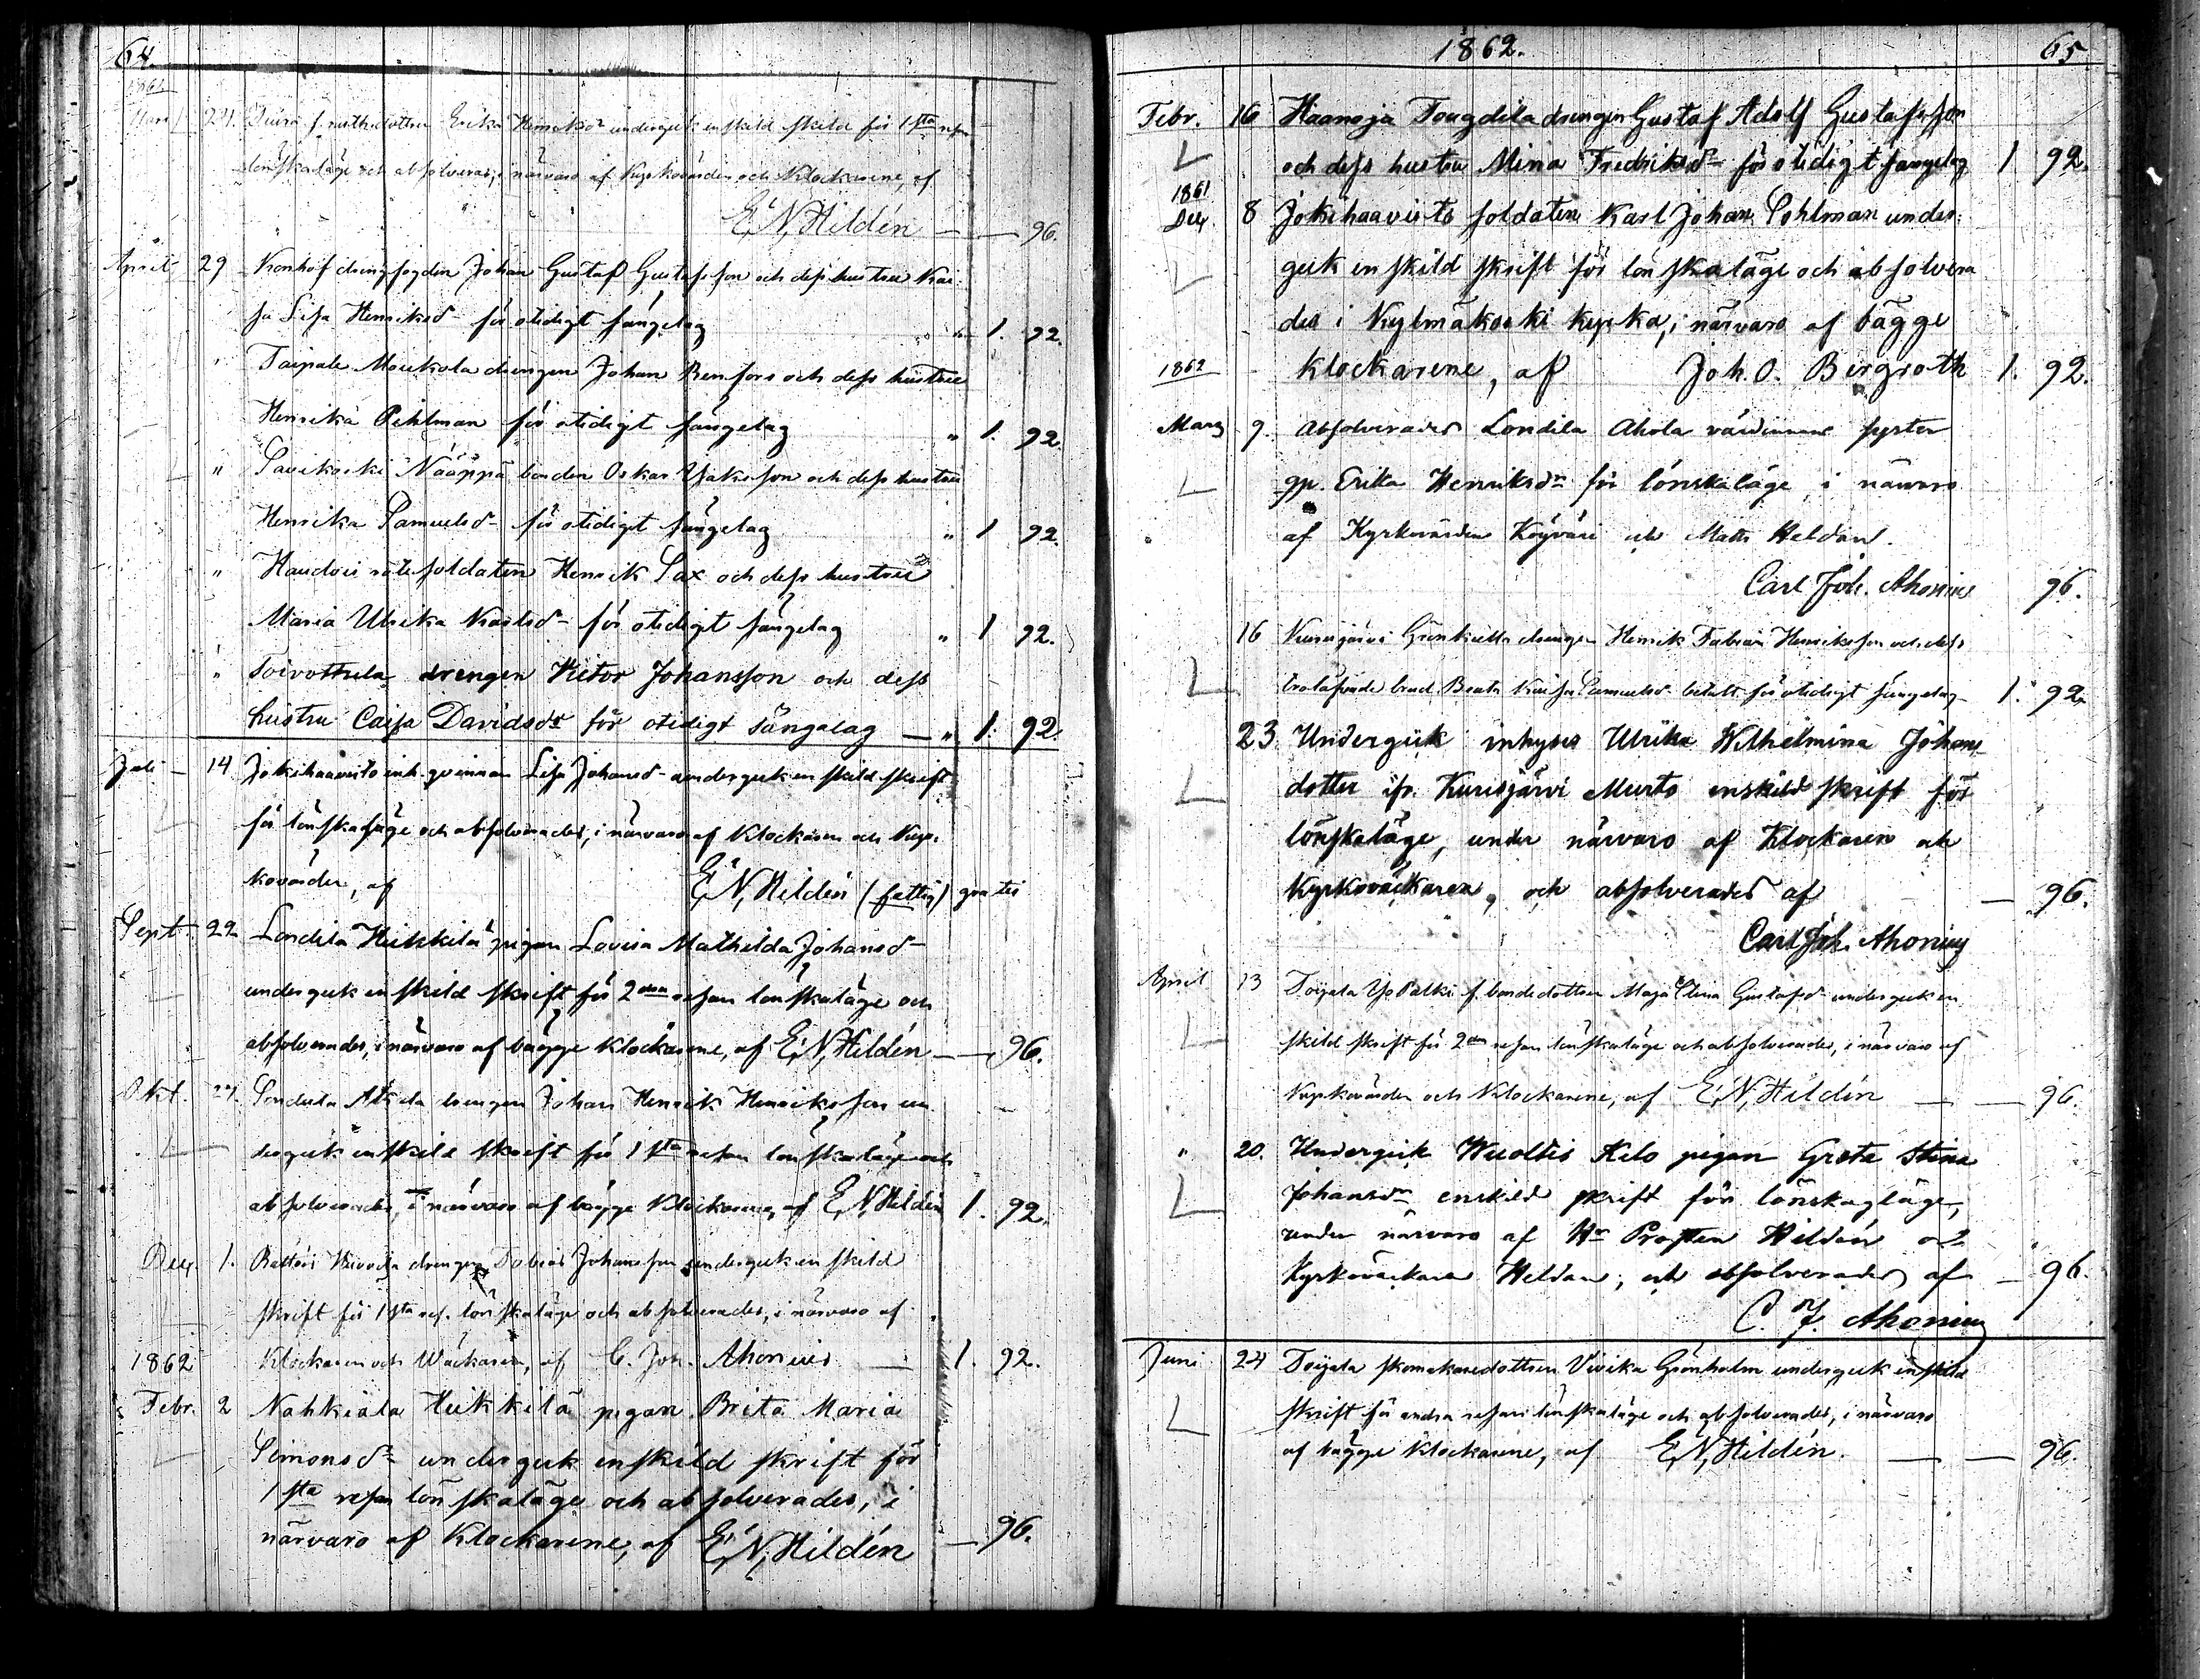 64.
1861
Mars 24. f. Erika Henriksdr undergick enskild skild för 1sta resan
lönskaläge och absolverad, i närvaro af Kyrkovärden och Klockarene, af
E. N. Hildén — — 96.
April 29 Kronhof drengfogden Johan Gustaf Gustafsson och dess hustru Kai-
sa Lisa Henriksd- för otidigt sängelag " 1. 92.
" Taipale Moukola drengen Johan Renfors och dess hustru
Henrika Pihlman för otidigt sängelag " 1. 92.
" Savikoski Nääppä bonden Oskar Isaksson och dess hustru
Henrika Samuelsd- för otidigt sängelag " 1 92.
" Haudois rotesoldaten Henrik Sax och dess hustru
Maria Ulrika Karlsd- för otidigt sängelag " 1 92.
" Toivottula drengen Victor Johansson och dess
hustru Caisa Davidsdr för otidigt sängalag — " 1. 92.
Juli — 14 Jokihaavisto inh. qvinnan Lisa Johansd- undergick enskild skrift
för lönskaläge och absolverades, i närvaro af Klockaren och Kyr-
kovärden, af E. N. Hildén (fattig) gratis
Sept. 22 Londila Heikkilä pigan Lovisa Mathilda Johansd-
undergick enskild skrift för 2dra resan lönskaläge och
absolverades, i närvaro af bägge Klockarene, af E. N. Hildén — — 96.
Okt. 27. drengen Johan Henrik Henriksson un-
dergick enskild skrift för 1sta resan lönskaläge och
absolverades, i närvaro af bägge Klockarene, af E. N. Hildén 1. 92.
Dec. 1. drengen Johansson undergick enskild
skrift för 1sta res. lönskaläge och absolverades, i närvaro af
1862 Klockaren och Wäckaren, af C. Joh. Ahonius — 1. 92.
Febr. 2 Nahkiala Heikkilä pigan Brita Maria
Simonsdr undergick enskild skrift för
1sta resan lönskaläge och absolverades, i
närvaro af Klockarene, af E. N. Hildén — 96.
1862. 65
Febr. 16 Haanoja drengen Gustaf Adolf Gustafsson
och dess hustru Mina Fredriksdr för otidigt sängelag 1 92.
1861
Dec. 8 Jokihaavisto soldaten Karl Johan Sohlman under-
gick enskild skrift för lönskaläge och absolvera
des i Kylmäkoski kyrka, i närvaro af bägge
1862 Klockarene, af Joh. O. Bergroth 1. 92.
Mars 9. Absolverades Londila Ahola värdinnans syster
qp. Erika Henriksdr för lönskaläge i närvaro
af Kyrkovärden Köyväri och Matts Heldan.
Carl Joh. Ahonius 96.
16 Kurisjärvi drengen Henrik Fabian Henriksson och dess
trolofvade brud Beata Kaisa Samuelsd- betalt för otidigt sängelag 1. 92.
23 Undergick inhyses Ulrika Wilhelmina Johans-
dotter ifr. Kurisjärvi Murto enskild skrift för
lönskaläge, under närvaro af Klockaren och
Kyrkoväckaren, och absolverades af — 96.
Carl Joh. Ahonius
April 13 Toijala f. bondedottren Maja Stina Gustafsd- undergick en-
skild skrift för 2dra resan lönskaläge och absolverades, i närvaro af
Kyrkovärden och Klockarene, af E. N. Hildén — — 96.
" 20. Undergick Wuoltis Kilo pigan Greta Stina
Johansdr enskild skrift för lönskagläge,
under närvaro af Hr Prosten Hildén och
Kyrkoväckaren Heldan, och absolverades af — 96.
C. J. Ahonius
Juni 24 Toijala skomakaredottren Vivika Grönholm undergick enskild
skrift för andra resan lönskaläge och absolverades, i närvaro
af bägge Klockarene, af E. N. Hildén. — — 96.